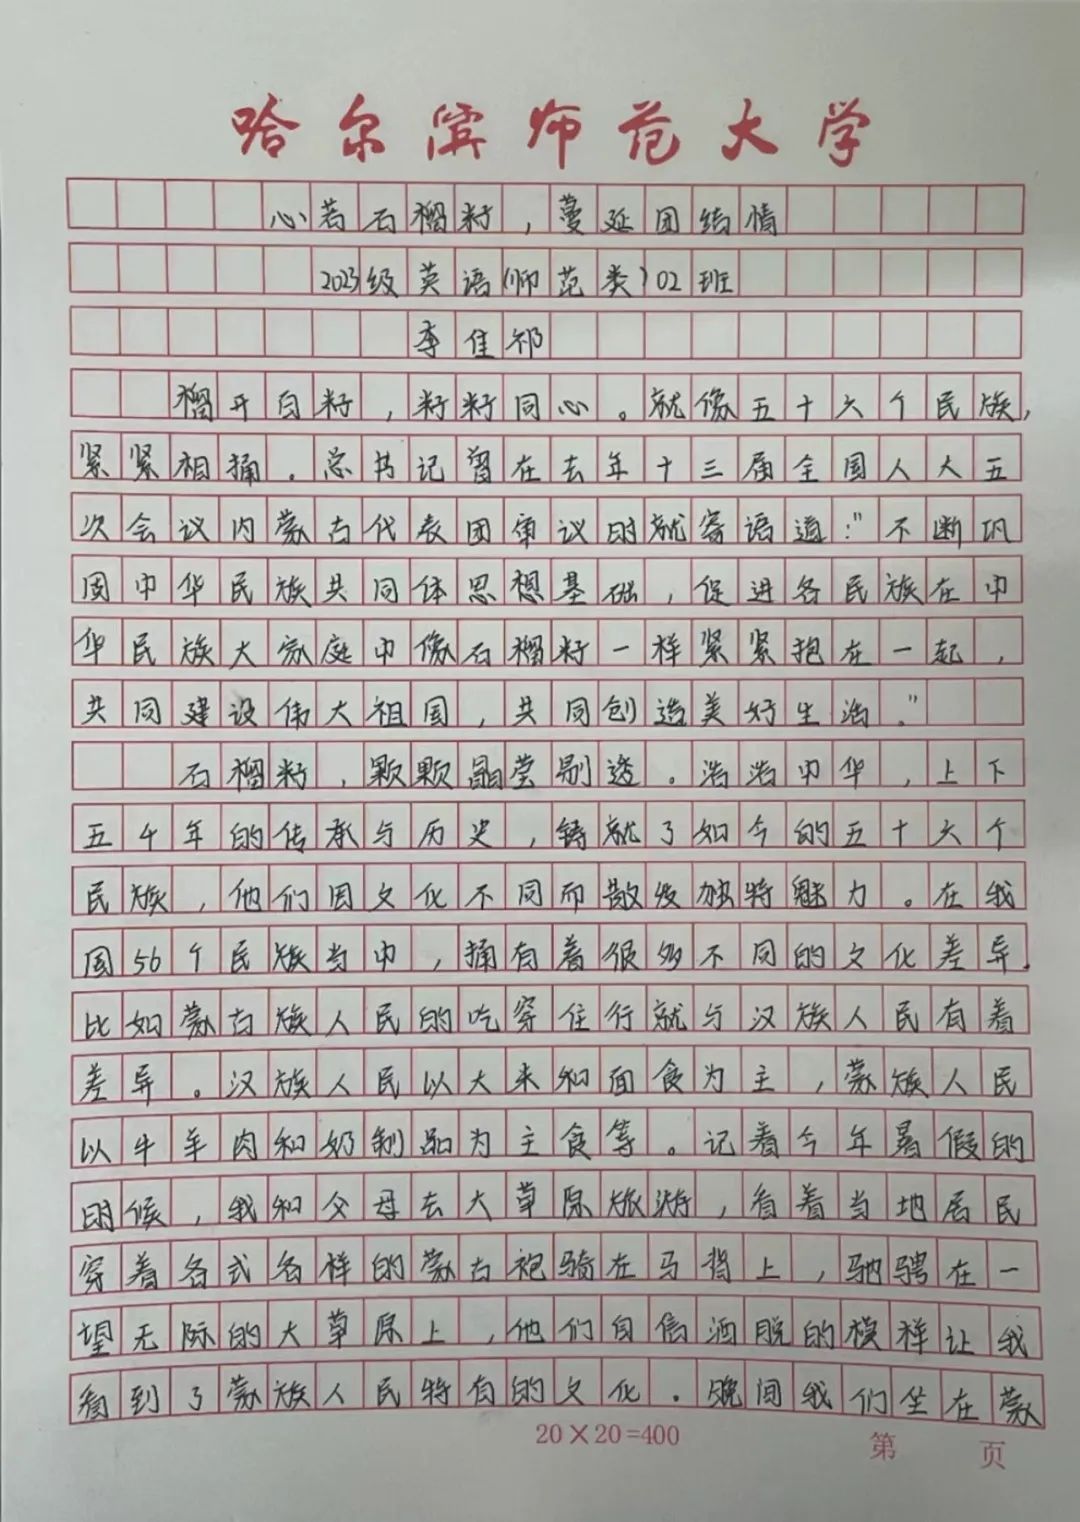 哈尔滨师范大学
心若石榴籽，蔓延团结情
2023级英语(师范类)02班
李佳祁
榴开百籽，籽籽同心。就像五十六个民族，
紧紧相拥。总书记曾在去年十三届全国人大五
次会议内蒙古代表团审议时就寄语道："不断巩
固中华民族共同体思想基础，促进各民族在中
华民族大家庭中像石榴籽一样紧紧抱在一起，
共同建设伟大祖国，共同创造美好生活。"
石榴籽，颗颗晶莹剔透。浩浩中华，上下
五千年的传承与历史，铸就了如今的五十六个
民族，他们因文化不同而散发独特魅力。在我
国56个民族当中，拥有着很多不同的文化差异.
比如蒙古族人民的吃穿住行就与汉族人民有着
差异。汉族人民以大米和面食为主，蒙族人民
以牛羊肉和奶制品为主食等。记着今年暑假的
时候，我和父母去大草原旅游，看着当地居民
穿着各式各样的蒙古袍骑在马背上，驰骋在一
望无际的大草原上，他们自信洒脱的模样让我
看到了蒙族人民特有的文化。晚间我们坐在蒙
20×20=400
第 页